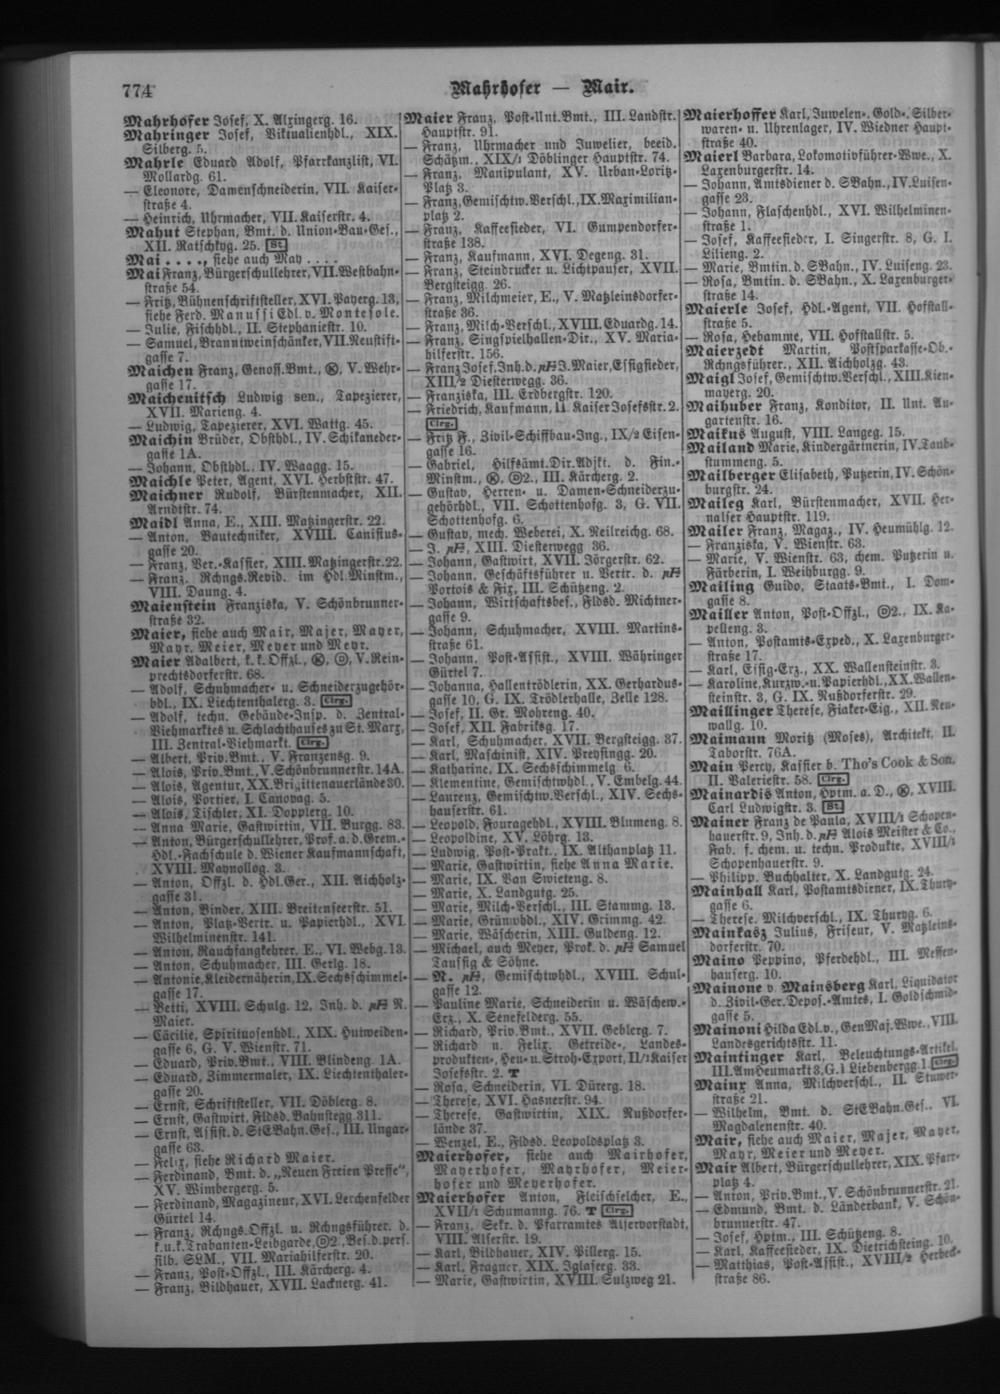 774
Mahrhofer — Mair.
Mahrhofer Josef, X. Alxingerg. 16.
Mahringer Josef, Viktualienhdl., XIX.
Silberg. 5.
Mahrle Eduard Adolf, Pfarrkanzlist, VI.
Mollardg. 61.
— Eleonore, Damenschneiderin, VII. Kaiser-
straße 4.
— Heinrich, Uhrmacher, VII. Kaiserstr. 4.
Mahut Stephan, Bmt. d. Union-Bau-Ges.,
XII. Ratschkyg. 25. St.
Mai . . . ., siehe auch May . . . .
Mai Franz, Bürgerschullehrer, VII. Westbahn-
straße 54.
— Fritz, Bühnenschriftsteller, XVI. Payerg. 13,
siehe Ferd. Manussi Edl. v. Montesole.
— Julie, Fischhdl., II. Stephaniestr. 10.
— Samuel, Branntweinschänker, VII. Neustift-
gasse 7.
Maichen Franz, Genoss. Bmt., Ⓚ, V. Wehr-
gasse 17.
Maichenitsch Ludwig sen., Tapezierer,
XVII. Marieng. 4.
— Ludwig, Tapezierer, XVI. Wattg. 45.
Maichin Brüder, Obsthdl., IV. Schikaneder-
gasse 1A.
— Johann, Obsthdl., IV. Waagg. 15.
Maichle Peter, Agent, XVI. Herbststr. 47.
Maichner Rudolf, Bürstenmacher, XII.
Arndtstr. 74.
Maidl Anna, E., XIII. Matzingerstr. 22.
— Anton, Bautechniker, XVIII. Canisius-
gasse 20.
— Franz, Ver.-Kassier, XIII. Matzingerstr. 22.
— Franz, Rchngs. Revid. im Hdl. Minstm.,
VIII. Daung. 4.
Maienstein Franziska, V. Schönbrunner-
straße 32.
Maier, siehe auch Mair, Majer, Mayer,
Mayr, Meier, Meyer und Meyr.
Maier Adalbert, k. k. Offzl., Ⓚ, V. Rein-
prechtsdorferstr. 68.
— Adolf, Schuhmacher- u. Schneiderzugehör-
hdl., IX. Liechtenthalerg. 3. Clrg.
— Adolf, techn. Gebäude-Insp. d. Zentral-
Viehmarktes u. Schlachthauses zu St. Marx,
III. Zentral-Viehmarkt. Clrg.
— Albert, Priv. Bmt., V. Franzensg. 9.
— Alois, Priv. Bmt., V. Schönbrunnerstr. 14A.
— Alois, Agentur, XX. Brigittenauerlände 30.
— Alois, Portier, I. Canovag. 5.
— Alois, Tischler, XI. Dopplerg. 10.
— Anna Marie, Gastwirtin, VII. Burgg. 83.
— Anton, Bürgerschullehrer, Prof. a. d. Grem.-
Hdl.-Fachschule d. Wiener Kaufmannschaft,
XVIII. Maynollog. 3.
— Anton, Offzl. d. Hdl. Ger., XII. Aichholz-
gasse 31.
— Anton, Binder, XIII. Breitenseerstr. 51.
— Anton, Platz-Vertr. u. Papierhdl., XVI.
Wilhelminenstr. 141.
— Anton, Rauchfangkehrer, E., VI. Webg. 13.
— Anton, Schuhmacher, III. Gerlg. 18.
— Antonie, Kleidernäherin, IX. Sechsschimmel-
gasse 17.
— Betti, XVIII. Schulg. 12, Inh. d. pH N.
Maier.
— Cäcilie, Spirituosenhdl., XIX. Hutweiden-
gasse 6, G. V. Wienstr. 71.
— Eduard, Priv. Bmt., VIII. Blindeng. 1A.
— Eduard, Zimmermaler, IX. Liechtenthaler-
gasse 20.
— Ernst, Schriftsteller, VII. Döblerg. 8.
— Ernst, Gastwirt, Fldsd. Bahnstegg 311.
— Ernst, Assist. d. StEBahn. Ges., III. Ungar-
gasse 63.
— Felix, siehe Richard Maier.
— Ferdinand, Bmt. d. „Neuen Freien Presse“,
XV. Wimbergerg. 5.
— Ferdinand, Magazineur, XVI. Lerchenfelder
Gürtel 14.
— Franz, Rchngs. Offzl. u. Rchngsführer. d.
k. u. k. Trabanten-Leibgarde, 2., Bes. d. pers.
silb. S&M., VII. Mariahilferstr. 20.
— Franz, Post-Offzl., III. Kärcherg. 4.
— Franz, Bildhauer, XVII. Lacknerg. 41.
Maier Franz, Post-Unt. Bmt., III. Landstr.
Hauptstr. 91.
— Franz, Uhrmacher und Juwelier, beeid.
Schätzm., XIX/1 Döblinger Hauptstr. 74.
— Franz, Manipulant, XV. Urban-Loritz-
Platz 3.
— Franz, Gemischtw. Verschl., IX. Maximilian-
platz 2.
— Franz, Kaffeesieder, VI. Gumpendorfer-
straße 138.
— Franz, Kaufmann, XVI. Degeng. 31.
— Franz, Steindrucker u. Lichtpauser, XVII.
Bergsteigg. 26.
— Franz, Milchmeier, E., V. Matzleinsdorfer-
straße 36.
— Franz, Milch-Verschl., XVIII. Eduardg. 14.
— Franz, Singspielhallen-Dir., XV. Maria-
hilferstr. 156.
— Franz Josef, Inh. d. pH J. Maier, Essigsieder,
XIII/2 Diesterwegg. 36.
— Franziska, III. Erdbergstr. 120.
— Friedrich, Kaufmann, II. Kaiser Josefsstr. 2.
Clrg.
— Fritz F., Zivil-Schiffbau-Ing., IX/2 Eisen-
gasse 16.
— Gabriel, Hilfsämt. Dir. Adjkt. d. Fin.-
Minstm., Ⓚ, 2., III. Kärcherg. 2.
— Gustav, Herren- u. Damen-Schneiderzu-
gehörhdl., VII. Schottenhofg. 3, G. VII.
Schottenhofg. 6.
— Gustav, mech. Weberei, X. Neilreichg. 68.
— J. pH, XIII. Diesterwegg 36.
— Johann, Gastwirt, XVII. Jörgerstr. 62.
— Johann, Geschäftsführer u. Vertr. d. pH
Portois & Fix, III. Schützeng. 2.
— Johann, Wirtschaftsbes., Fldsd. Richtner-
gasse 9.
— Johann, Schuhmacher, XVIII. Martins-
straße 61.
— Johann, Post-Assist., XVIII. Währinger
Gürtel 7.
— Johanna, Hallentrödlerin, XX. Gerhardus-
gasse 10, G. IX. Trödlerhalle, Zelle 128.
— Josef, II. Gr. Mohreng. 40.
— Josef, XII. Fabriksg. 17.
— Karl, Schuhmacher, XVII. Bergsteigg. 37.
— Karl, Maschinist, XIV. Preysingg. 20.
— Katharine, IX. Sechsschimmelg. 6.
— Klementine, Gemischtwhdl., V. Embelg. 44.
— Laurenz, Gemischtw. Verschl., XIV. Sechs-
hauserstr. 61.
— Leopold, Fouragehdl., XVIII. Blumeng. 8.
— Leopoldine, XV. Löhrg. 13.
— Ludwig, Post-Prakt., IX. Althanplatz 11.
— Marie, Gastwirtin, siehe Anna Marie.
— Marie, IX. Van Swieteng. 8.
— Marie, X. Landgutg. 25.
— Marie, Milch-Verschl., III. Stammg. 13.
— Marie, Grünwhdl., XIV. Grimmg. 42.
— Marie, Wäscherin, XIII. Guldeng. 12.
— Michael, auch Meyer, Prok. d. pH Samuel
Taussig & Söhne.
— N. pH, Gemischtwhdl., XVIII. Schul-
gasse 12.
— Pauline Marie, Schneiderin u. Wäschew.-
Erz., X. Senefelderg. 55.
— Richard, Priv. Bmt., XVII. Geblerg. 7.
— Richard u. Felix, Getreide-, Landes-
produkten-, Heu- u. Stroh-Export, II/1 Kaiser
Josefsstr. 2. T
— Rosa, Schneiderin, VI. Dürerg. 18.
— Therese, XVI. Hasnerstr. 94.
— Therese, Gastwirtin, XIX. Nußdorfer-
lände 37.
— Wenzel, E., Fldsd. Leopoldsplatz 3.
Maierhofer, siehe auch Mairhofer,
Mayerhofer, Mayrhofer, Meier-
hofer und Meyerhofer.
Maierhofer Anton, Fleischselcher, E.,
XVII/1 Schumanng. 76. T Clrg.
— Franz, Sekr. d. Pfarramtes Alservorstadt,
VIII. Alserstr. 19.
— Karl, Bildhauer, XIV. Pillerg. 15.
— Karl, Fragner, XIX. Iglaseeg. 33.
— Marie, Gastwirtin, XVIII. Sulzweg 21.
Maierhoffer Karl, Juwelen-, Gold-, Silber-
waren- u. Uhrenlager, IV. Wiedner Haupt-
straße 40.
Maierl Barbara, Lokomotivführer-Wwe., X.
Laxenburgerstr. 14.
— Johann, Amtsdiener d. SBahn., IV. Luisen-
gasse 23.
— Johann, Flaschenhdl., XVI. Wilhelminen-
straße 1.
— Josef, Kaffeesieder, I. Singerstr. 8, G. I.
Lilieng. 2.
— Marie, Bmtin. d. SBahn., IV. Luiseng. 23.
— Rosa, Bmtin. d. SBahn., X. Laxenburger-
straße 14.
Maierle Josef, Hdl.-Agent, VII. Hofstall-
straße 5.
— Rosa, Hebamme, VII. Hofstallstr. 5.
Maierzedt Martin, Postsparkasse-Ob.-
Rchngsführer., XII. Aichholzg. 43.
Maigl Josef, Gemischtw. Verschl., XIII. Kien-
mayerg. 20.
Maihuber Franz, Konditor, II. Unt. Au-
gartenstr. 16.
Maikus August, VIII. Langeg. 15.
Mailand Marie, Kindergärtnerin, IV. Taub-
stummeng. 5.
Mailberger Elisabeth, Putzerin, IV. Schön-
burgstr. 24.
Maileg Karl, Bürstenmacher, XVII. Her-
nalser Hauptstr. 119.
Mailer Franz, Magaz., IV. Heumühlg. 12.
— Franziska, V. Wienstr. 63.
— Marie, V. Wienstr. 63, chem. Putzerin u.
Färberin, I. Weihburgg. 9.
Mailing Guido, Staats-Bmt., I. Dom-
gasse 8.
Mailler Anton, Post-Offzl., 2., IX. Ka-
pelleng. 3.
— Anton, Postamts-Exped., X. Laxenburger-
straße 17.
— Karl, Essig-Erz., XX. Wallensteinstr. 3.
— Karoline, Kurzw.- u. Papierhdl., XX. Wallen-
steinstr. 3, G. IX. Nußdorferstr. 29.
Maillinger Therese, Fiaker-Eig., XII. Neu-
wallg. 10.
Maimann Moritz (Moses), Architekt, II.
Taborstr. 76A.
Main Percy, Kassier b. Tho's Cook & Son.
II. Valeriestr. 58. Clrg.
Mainardis Anton, Hptm. a. D., Ⓚ, XVIII.
Carl Ludwigstr. 3. St.
Mainer Franz de Paula, XVIII/1 Schopen-
hauerstr. 9, Inh. d. pH Alois Meister & Co.,
Fab. f. chem. u. techn. Produkte, XVIII/1
Schopenhauerstr. 9.
— Philipp, Buchhalter, X. Landgutg. 24.
Mainhall Karl, Postamtsdiener, IX. Thury-
gasse 6.
— Therese, Milchverschl., IX. Thuryg. 6.
Mainkasz Julius, Friseur, V. Matzleins-
dorferstr. 70.
Maino Peppino, Pferdehdl., III. Messen-
hauserg. 10.
Mainone v. Mainsberg Karl, Liquidator
d. Zivil-Ger. Depos.-Amtes, I. Goldschmid-
gasse 5.
Mainoni Hilda Edl. v., GenMaj. Wwe., VIII.
Landesgerichtsstr. 11.
Maintinger Karl, Beleuchtungs-Artikel,
III. Am Heumarkt 3, G. I Liebenbergg. 1 Clrg.
Mainx Anna, Milchverschl., II. Stuwer-
straße 21.
— Wilhelm, Bmt. d. StEBahn. Ges., VI.
Magdalenenstr. 40.
Mair, siehe auch Maier, Majer, Mayer,
Mayr, Meier und Meyer.
Mair Albert, Bürgerschullehrer, XIX. Pfarr-
platz 4.
— Anton, Priv. Bmt., V. Schönbrunnerstr. 21.
— Edmund, Bmt. d. Länderbank, V. Schön-
brunnerstr. 47.
— Josef, Hptm., III. Schützeng. 8.
— Karl, Kaffeesieder, IX. Dietrichsteing. 10.
— Matthias, Post-Assist., XVIII/2 Herbeck-
straße 86.